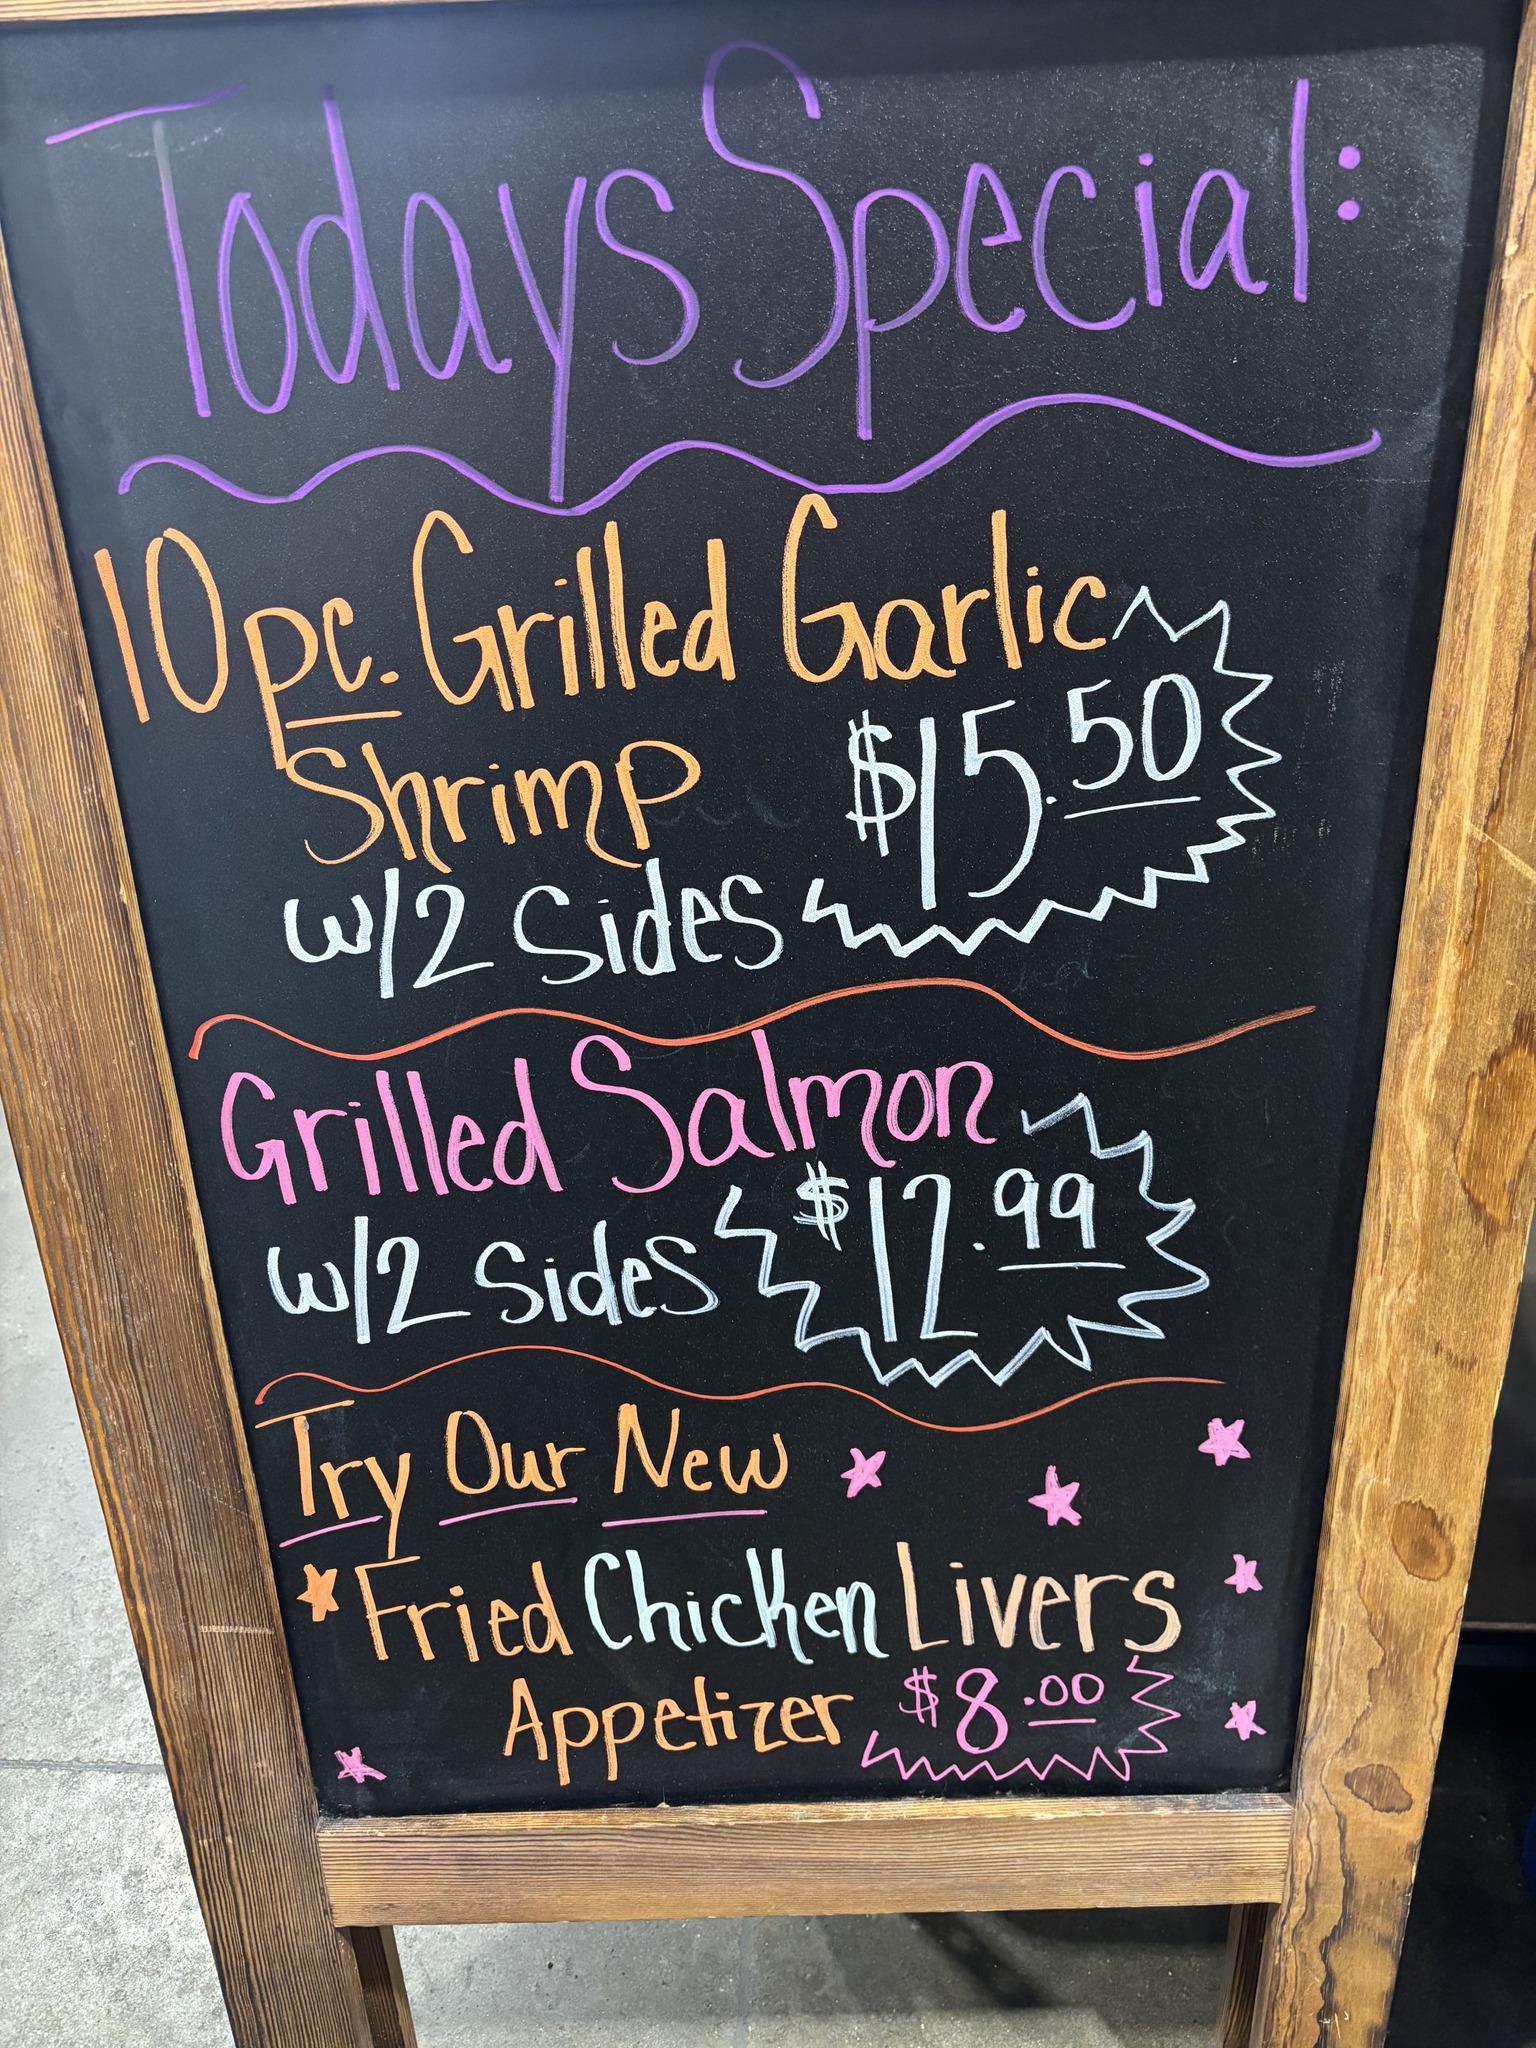 Todays Special:
10 pc. Grilled Garlic
Shrimp $15.50
w/2 Sides
Grilled Salmon
w/2 Sides $12.99
Try Our New
Fried Chicken Livers
Appetizer $8.00